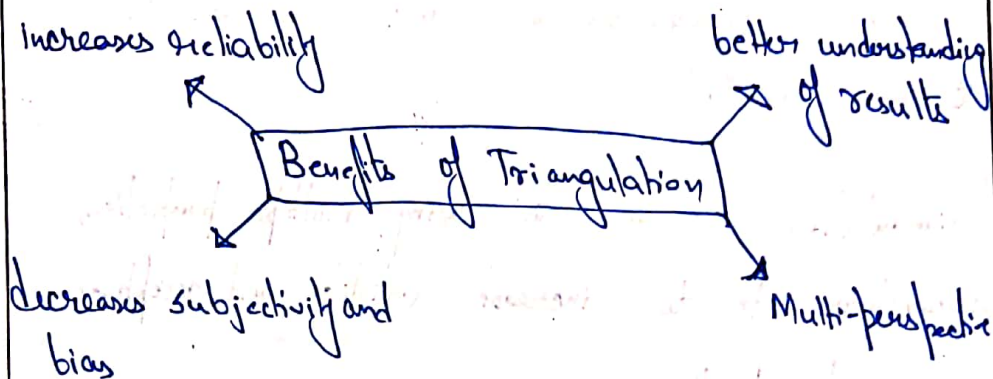 increases reliability
better understanding
of results
Benefits of Triangulation
decreases subjectivity and
bias
Multi-perspective